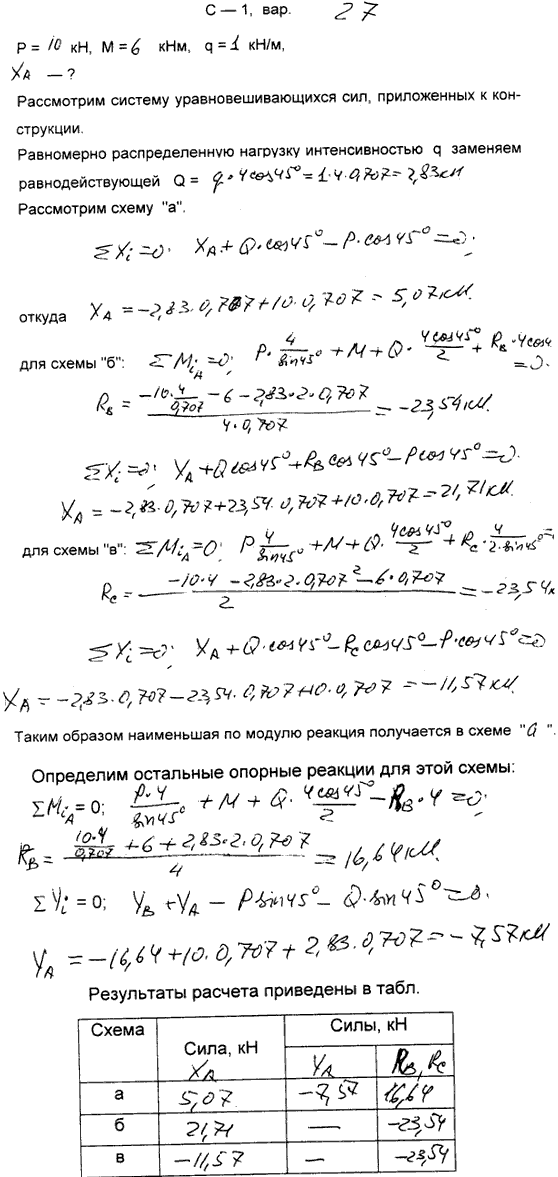 С — 1, вар. 27
P = 10 кН, M = 6 кНм, q = 1 кН/м,
X_A — ?
Рассмотрим систему уравновешивающихся сил, приложенных к кон-
струкции.
Равномерно распределенную нагрузку интенсивностью q заменяем
равнодействующей Q = q·4cos45° = 1·4·0,707 = 2,83кН
Рассмотрим схему "а".
ΣXi=0; X_A + Q·cos45° − P·cos45° = 0;
откуда X_A = −2,83·0,707 + 10·0,707 = 5,07кН.
для схемы "б": ΣMi_A=0; P·4/sin45° + M + Q·4cos45°/2 + R_B·4cos45° = 0.
R_B = (−10·4/0,707 − 6 − 2,83·2·0,707)/(4·0,707) = −23,54кН.
ΣXi=0; X_A + Qcos45° + R_Bcos45° − Pcos45° = 0.
X_A = −2,83·0,707 + 23,54·0,707 + 10·0,707 = 21,71кН.
для схемы "в": ΣMi_A=0; P 4/sin45° + M + Q·4cos45°/2 + R_C·4/2·sin45° =
R_C = (−10·4 − 2,83·2·0,707² − 6·0,707)/2 = −23,54к
ΣXi=0; X_A + Q·cos45° − R_Ccos45° − P·cos45° = 0
X_A = −2,83·0,707 − 23,54·0,707 + 10·0,707 = −11,57кН.
Таким образом наименьшая по модулю реакция получается в схеме "а".
Определим остальные опорные реакции для этой схемы:
ΣMi_A = 0; P·4/sin45° + M + Q·4cos45°/2 − R_B·4 = 0;
R_B = (10·4/0,707 + 6 + 2,83·2·0,707)/4 = 16,64кН.
ΣYi = 0; Y_B + Y_A − Psin45° − Q·sin45° = 0.
Y_A = −16,64 + 10·0,707 + 2,83·0,707 = −7,57кН
Результаты расчета приведены в табл.
Схема Сила, кН Силы, кН
X_A Y_A R_B, R_C
а 5,07 −7,57 16,64
б 21,71 — −23,54
в −11,57 — −23,54